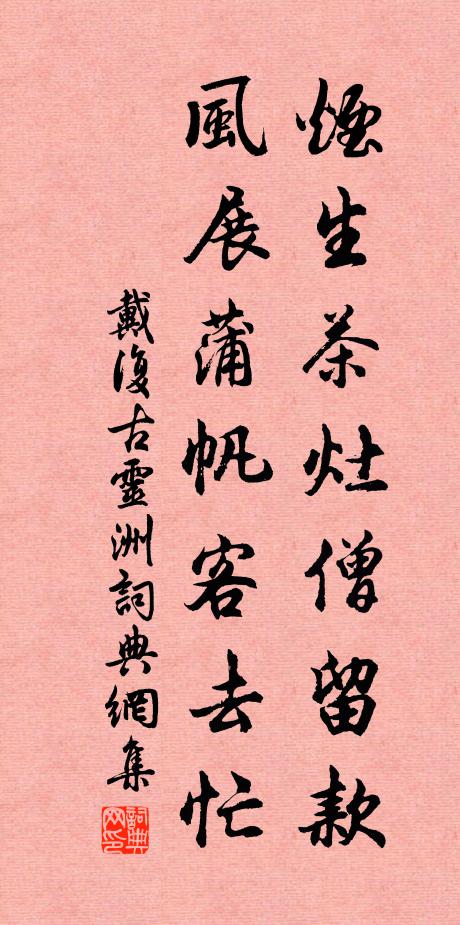 煙生茶灶僧留款
風展蒲帆客去忙
戴復古靈洲詞典網集
詞典网印